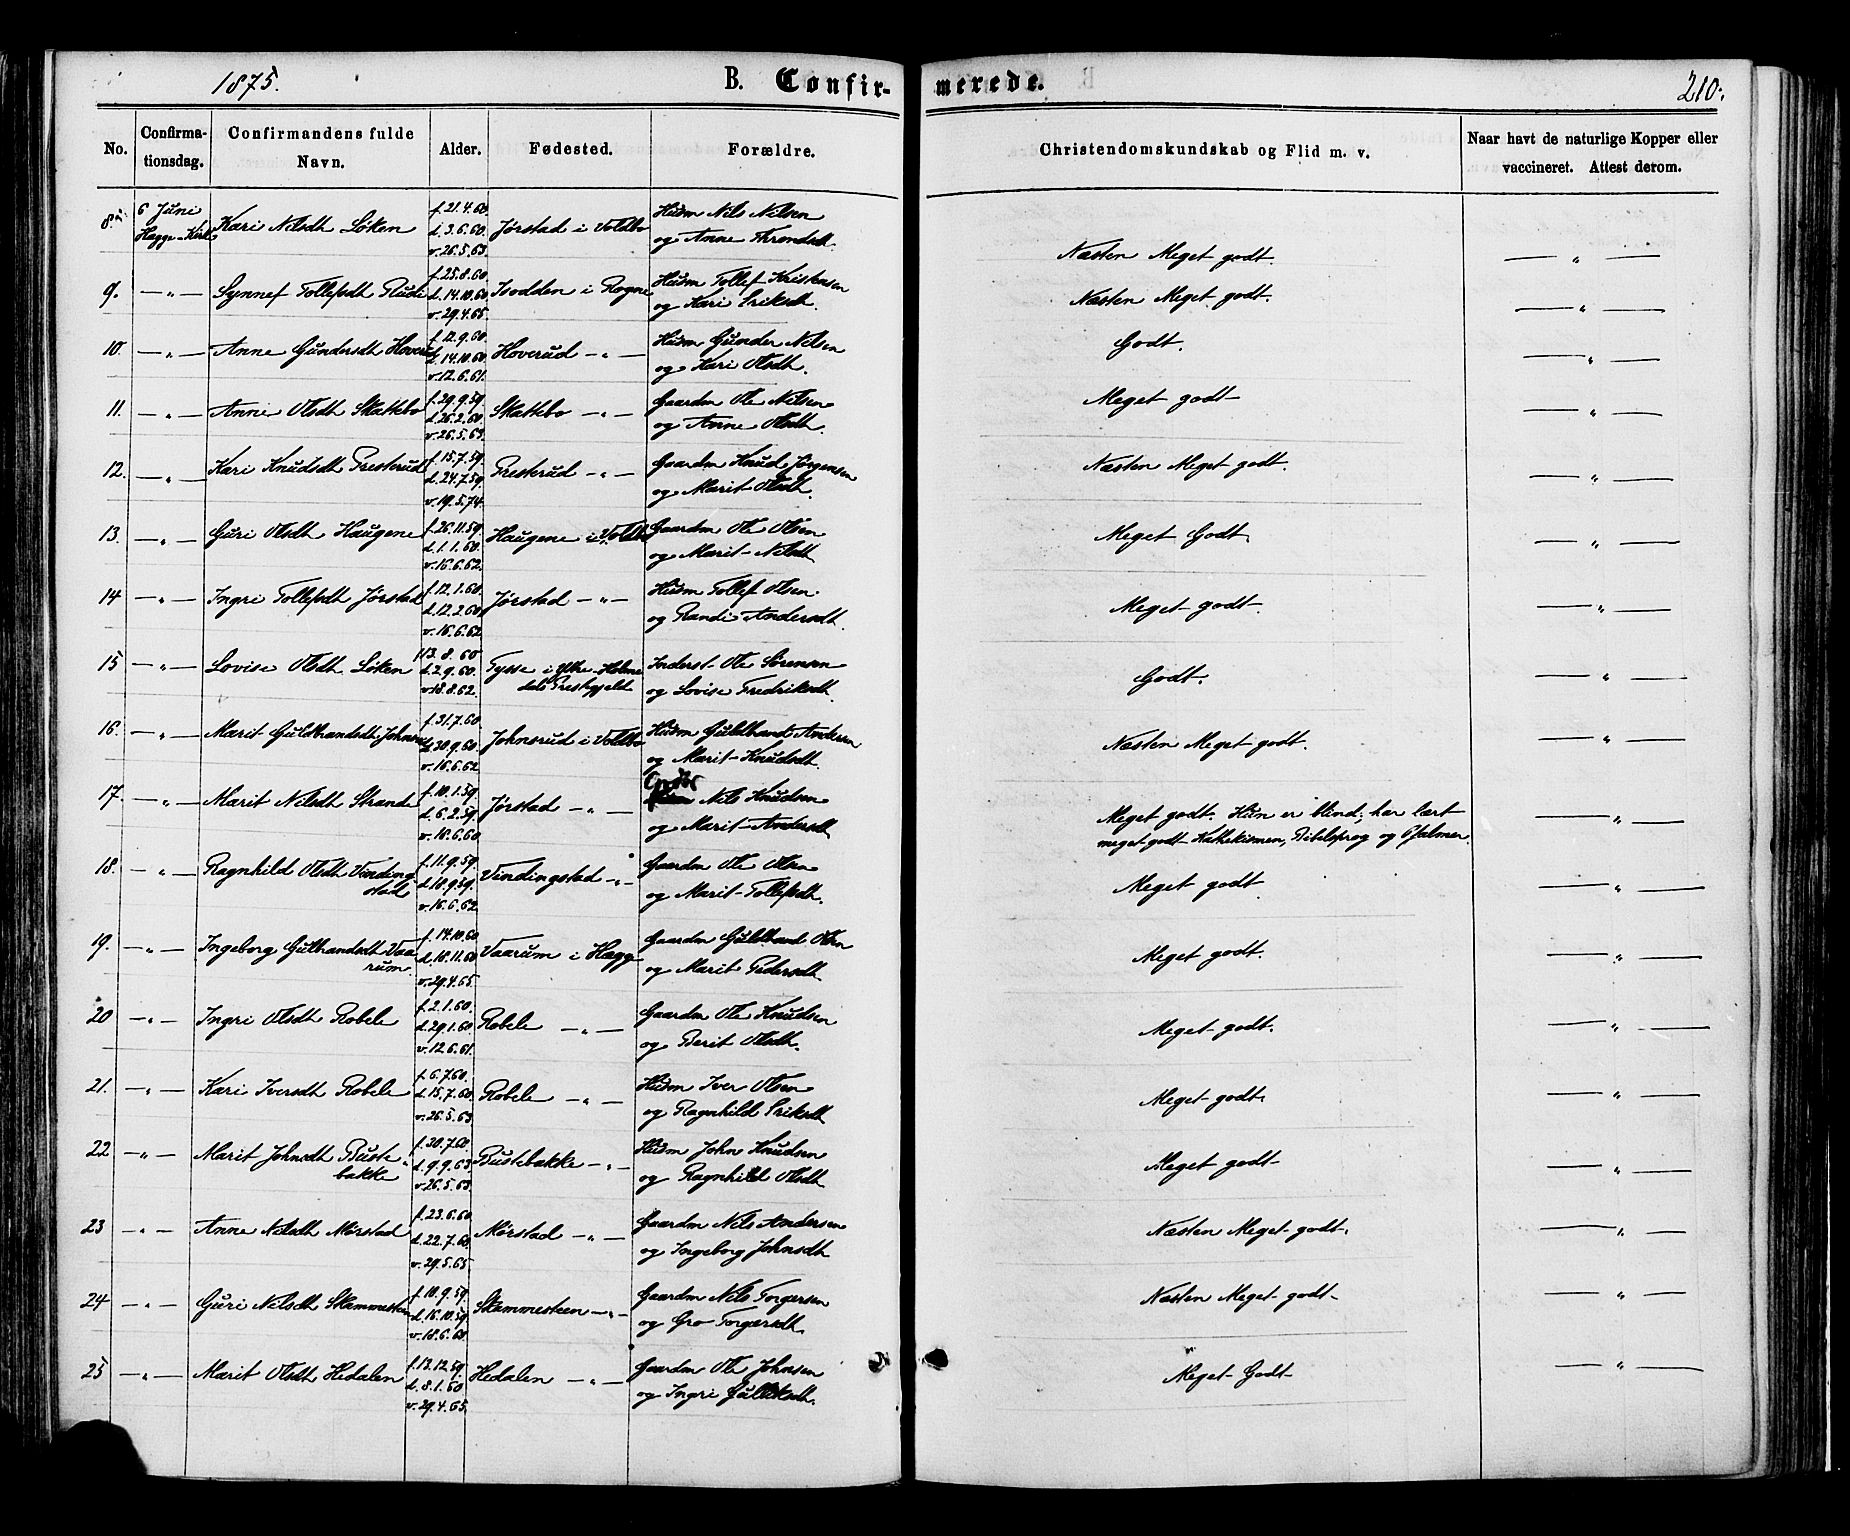 1875.
B. Confirmerede.
210.
No.
Confirmationsdag.
Confirmandens fulde Navn.
Alder.
Fødested.
Forældre.
Christendomskundskab og Flid m. v.
Naar havt de naturlige Kopper eller vaccineret. Attest derom.
8. 6 Juni Hegge-Kirke Kari Nilsdt Løken f. 21.4.60. d. 3.6.60. v. 26.5.63. Jørstad i Voldbo Husm Nils Nilsen og Anne Throndsdt. Næsten Meget godt. — " —
9. — " — Synnef Tollefsdt Rudi f. 25.8.60 d. 14.10.60 v. 29.4.65. i Rogne Husm Tollef Kristensen og Kari Eriksdt. Næsten Meget godt. — " —
10. — " — Anne Gundersdt Hoverud f. 12.9.60. d. 14.10.60. v. 12.6.61. Hoverud — " — Husm Gunder Nilsen og Kari Olsdt. Godt. — " —
11. — " — Anne Olsdt Skattebo f. 29.9.59. d. 26.2.60. v. 26.5.63. Skattebo — " — Gaardm Ole Nilsen og Anne Olsdt. Meget godt — " —
12. — " — Kari Knudsdt Presterud f. 15.7.59. d. 24.7.59. v. 19.5.74. Presterud — " — Gaardm Knud Jørgensen og Marit Olsdt. Næsten Meget godt. — " —
13. — " — Guri Olsdt Haugene f. 26.11.59. d. 1.1.60. v. 16.6.62. Haugene i Voldb Gaardm Ole Olsen og Marit Nilsdt Meget Godt. — " —
14 — " — Ingri Tollefsdt Jørstad f. 12.1.60. d. 12.2.60. v. 16.6.62. Jørstad — " — Husm Tollef Olsen og Randi Andersdt. Meget godt. — " —
15 — " — Lovise Olsdt Løken 13.8.60 d. 2.9.60. v. 18.8.62. Tysse i Ytre Holmedals Prestegjeldt Inderst Ole Sørensen og Lovise Fredriksdt. Godt. — " —
16. — " — Marit Guldbrandsdt Johnsrud f. 31.7.60. d. 30.9.60. v. 16.6.62 Johnsrud i Voldbo Husm Guldbrand Andersen og Marit Knudsdt. Næsten Meget godt. — " —
17. — " — Marit Nilsdt Strande f. 10.1.59. d. 6.2.59. v. 16.6.60. Jørstad — " — Nils Knudsen og Marit Andersdt Meget godt. Hun er blind; har lært meget godt Kathekismen, Bibelsprog og Psalmer. — " —
18. — " — Ragnhild Olsdt Vindingstad f. 11.9.59. d. 18.9.59. v. 16.6.62 Vindingstad — " — Gaardm Ole Olsen og Marit Tollefsdt. Meget godt. — " —
19. — " — Ingeborg Gulbrandsdt Vaarum. f. 14.10.60 d. 18.11.60 v. 29.4.65. Vaarum i Hegge Gaardm Guldbrand Olsen og Marit Pedersdt Meget godt. — " —
20 — " — Ingri Olsdt Robele f. 2.1.60. d. 29.1.60 v. 12.6.61. Robele — " — Gaardm Ole Knudsen og Berit Olsdt. Meget godt. — " —
21. — " — Kari Iversdt Robele f. 6.7.60. d. 15.7.60. v. 26.5.63 Robele — " — Husm Iver Olsen og Ragnhild Eriksdt Meget godt. — " —
22 — " — Marit Johnsdt Bustebakke f. 30.7.60 d. 9.9.63 v. 26.5.63. Bustebakke — " — Husm John Knudsen og Ragnhild Olsdt Meget godt — " —
23 — " — Anne Nilsdt Mørstad f. 23.6.60. d. 22.7.60 v. 29.5.65 Mørstad — " — Gaardm Nils Andersen og Ingeborg Johnsdt Næsten Meget godt. — " —
24 — " — Guri Nilsdt Skammesteen f. 18.9.59. d. 16.10.59 v. 18.6.60. Skammesteen — " — Gaardm Nils Torgersen og Gro Torgersdt. Næsten Meget godt — " —
25 — " — Marit Olsdt Hedalen f. 13.12.59. d. 8.1.60 v. 29.4.65. Hedalen — " — Gaardm Ole Johnsen og Ingri Gulliksdt. Meget Godt — " —